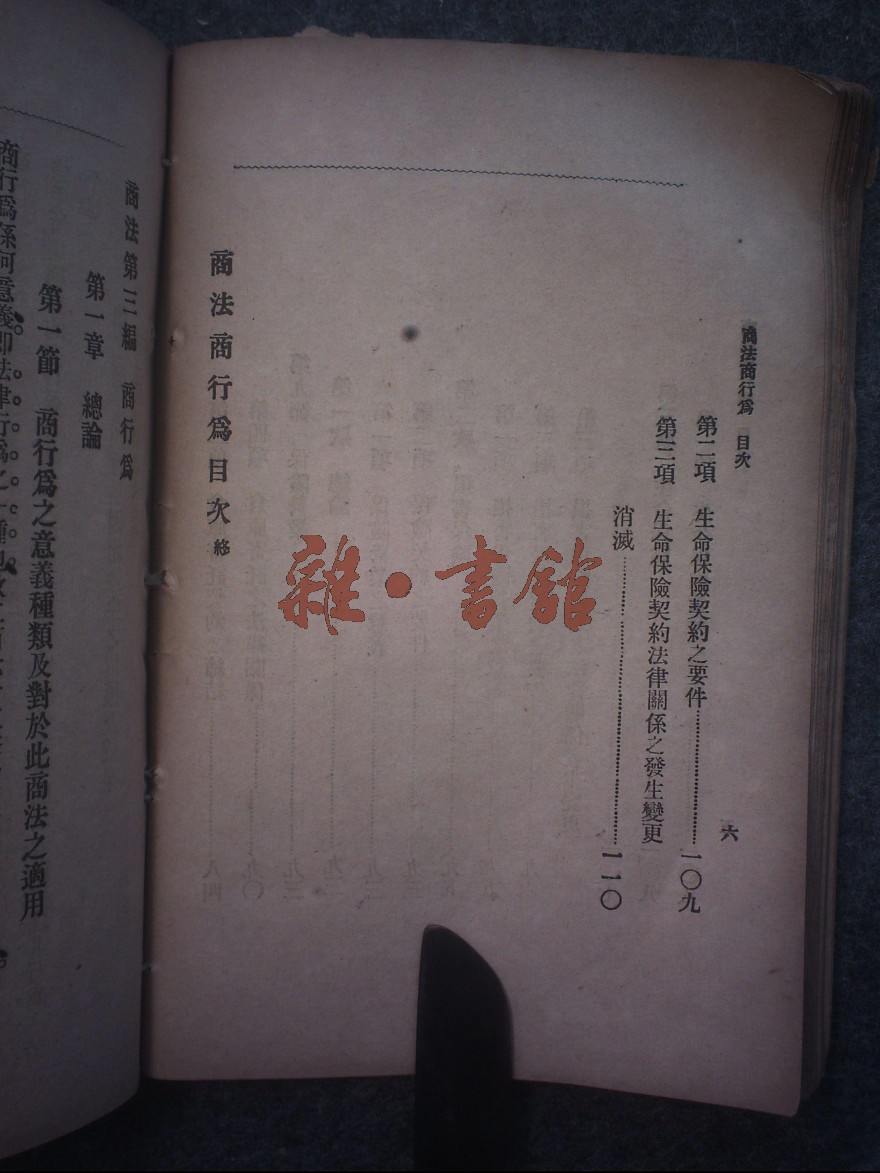 商法商行爲 目次
六
第二項 生命保險契約之要件……一〇九
第三項 生命保險契約法律關係之發生變更
消滅……一一〇
商法商行爲目次 終
雜·書館
商法第三編 商行爲
第一章 總論
第一節 商行爲之意義種類及對於此商法之適用
商行爲係何意義即法律行爲之一種也